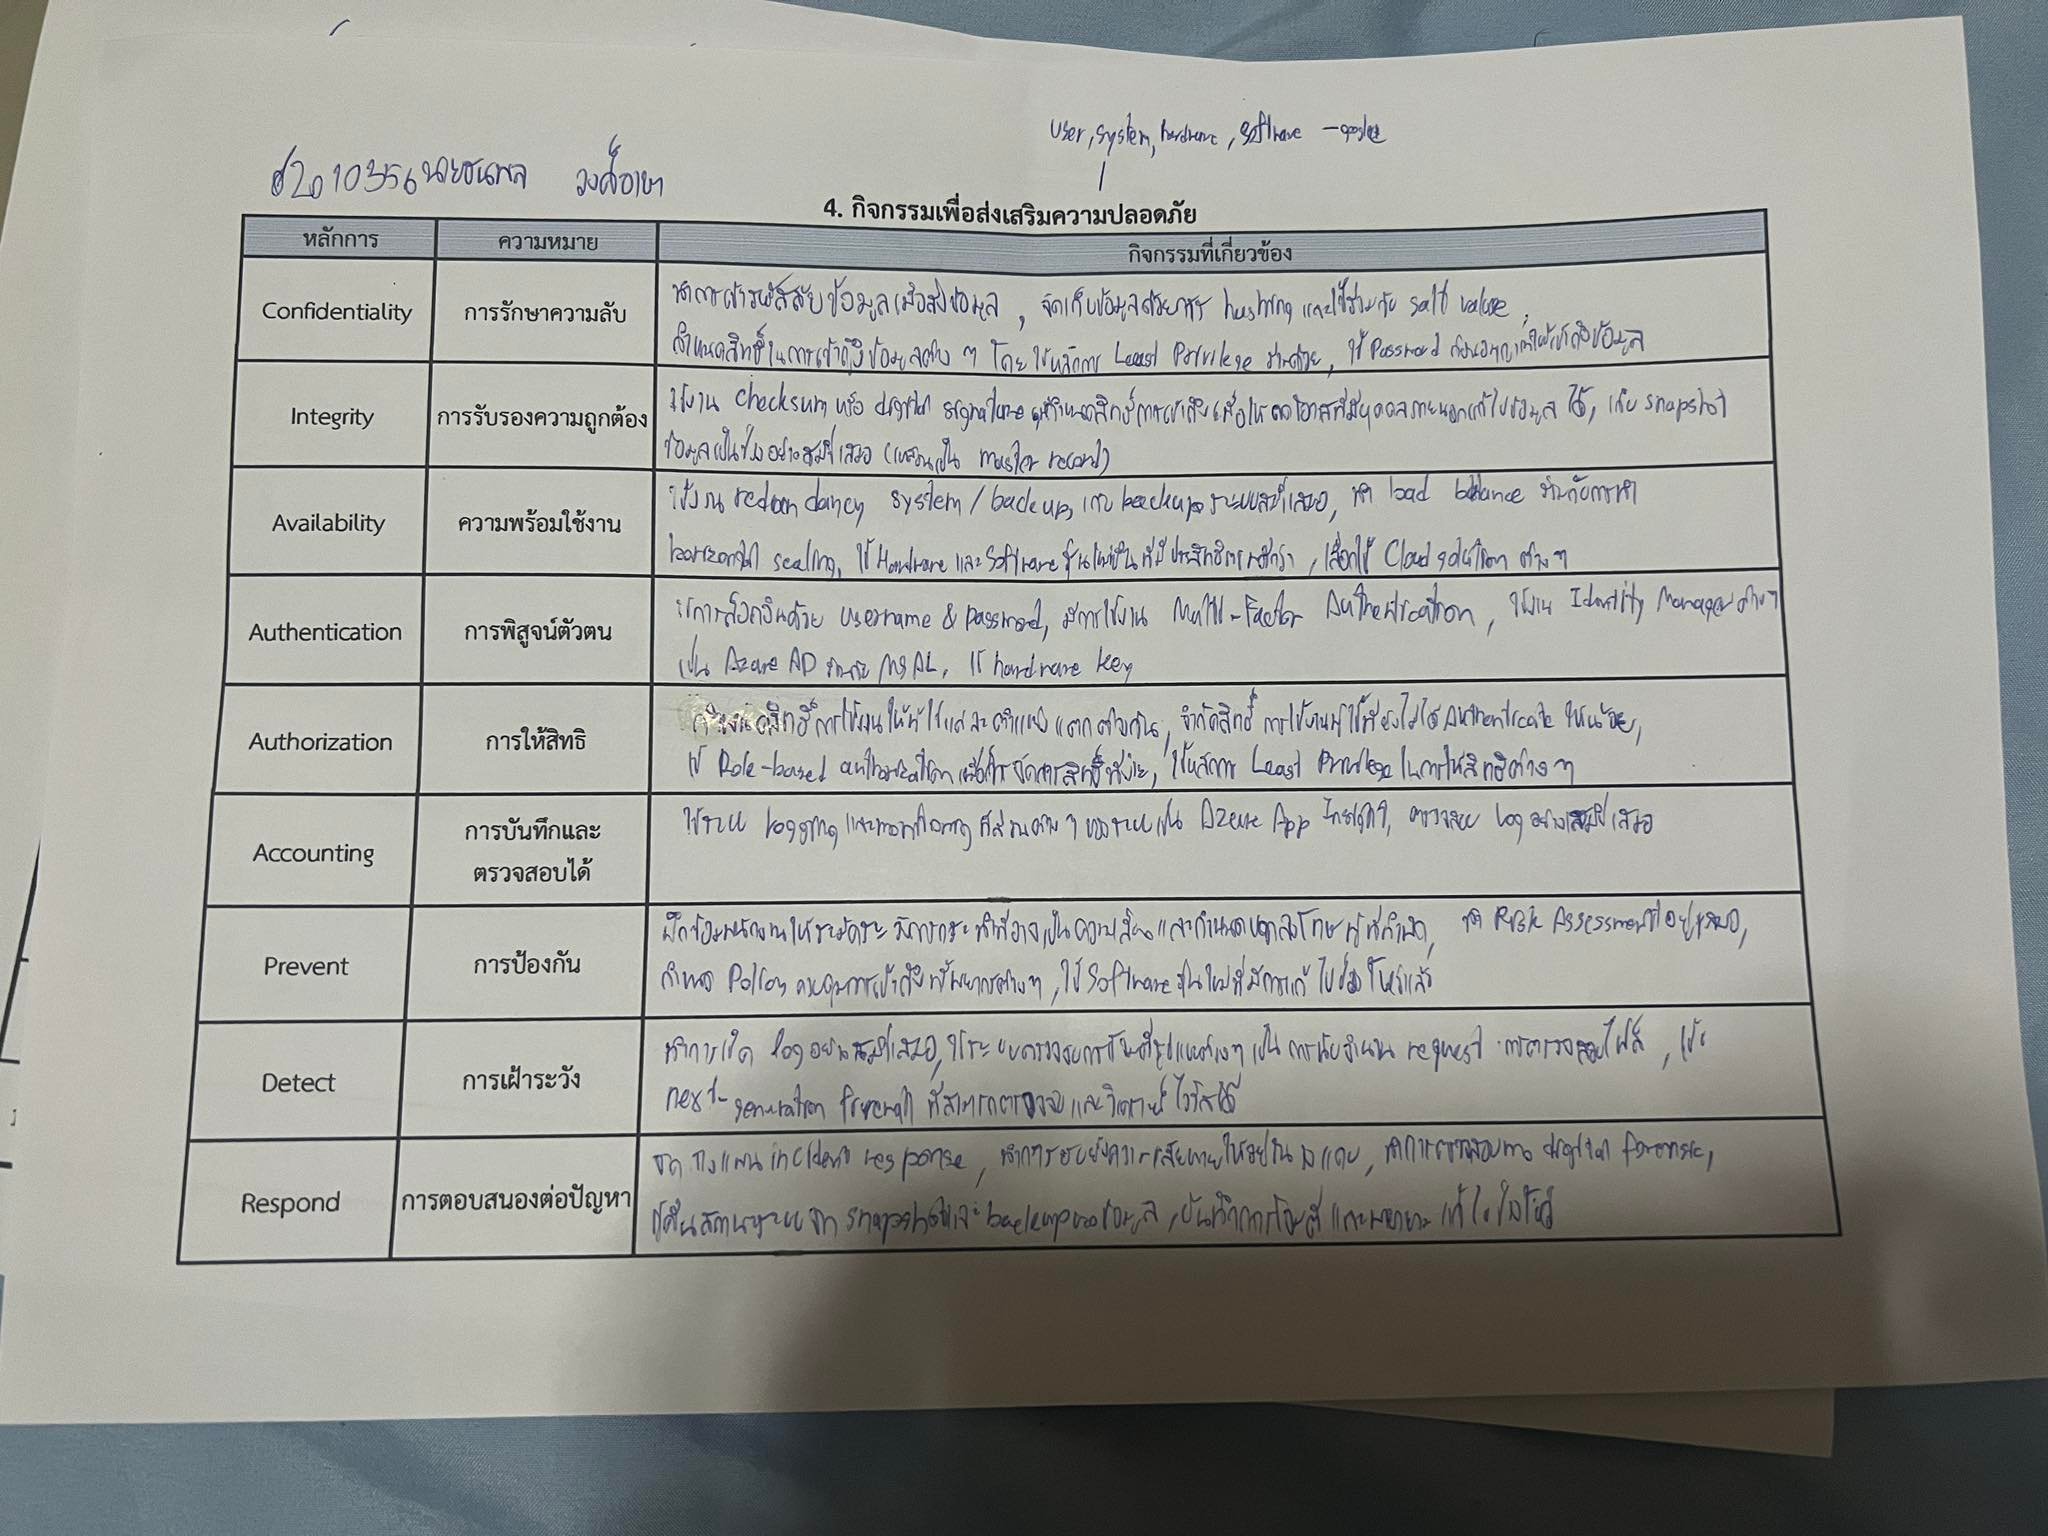 user, system, hardware, software
นายธนพล วงศ์อาษา
4. กิจกรรมเพื่อส่งเสริมความปลอดภัย
หลักการ ความหมาย กิจกรรมที่เกี่ยวข้อง
Confidentiality การรักษาความลับ
ทำการเข้ารหัสลับข้อมูลเมื่อส่งข้อมูล, จัดเก็บข้อมูลด้วยการ hashing และใช้ร่วมกับ salt value,
กำหนดสิทธิ์ในการเข้าถึงข้อมูลต่าง ๆ โดยใช้หลักการ Least Privilege ร่วมด้วย, ใช้ Password ก่อนอนุญาตให้เข้าถึงข้อมูล
Integrity การรับรองความถูกต้อง
ใช้งาน checksum หรือ digital signature กำหนดสิทธิ์การเข้าถึงเพื่อให้ลดโอกาสที่มีบุคคลภายนอกแก้ไขข้อมูลได้, เก็บ snapshot
ข้อมูลเป็นช่วงอย่างสม่ำเสมอ (เป็น master record)
Availability ความพร้อมใช้งาน
ใช้งาน redundancy system / backup, backup ระบบสม่ำเสมอ, ทำ load balance ร่วมกับการทำ
horizontal scaling, ใช้ Hardware และ Software รุ่นใหม่ขึ้นที่มีประสิทธิภาพดีกว่า, เลือกใช้ Cloud solution ต่าง ๆ
Authentication การพิสูจน์ตัวตน
ใช้การล็อกอินด้วย username & password, มีการใช้งาน Multi-Factor Authentication, ใช้งาน Identity Manager ต่าง ๆ
เป็น Azure AD ร่วมกับ MSAL, ใช้ hardware key
Authorization การให้สิทธิ
กำหนดสิทธิ์การใช้งานให้ผู้ใช้แต่ละตำแหน่งแตกต่างกัน, จำกัดสิทธิ์การใช้งานผู้ใช้ที่ยังไม่ได้ Authenticate ให้น้อย,
ใช้ Role-based authorization เพื่อให้จัดการสิทธิ์ได้ง่าย, ใช้หลักการ Least Privilege ในการให้สิทธิ์ต่าง ๆ
Accounting การบันทึกและ
ตรวจสอบได้
ใช้ระบบ logging และ monitoring ที่ส่วนต่าง ๆ ของระบบ เป็น Azure App Insight, ตรวจสอบ log อย่างสม่ำเสมอ
Prevent การป้องกัน
ฝึกซ้อมพนักงานให้ระมัดระวังการกระทำที่อาจเป็นความเสี่ยงและกำหนดบทลงโทษผู้ที่ทำผิด, ทำ Risk Assessment อยู่เสมอ,
กำหนด Policy ควบคุมการเข้าถึงทรัพยากรต่าง ๆ, ใช้ Software รุ่นใหม่ที่มีการแก้ไขช่องโหว่แล้ว
Detect การเฝ้าระวัง
ทำการเช็ค log อย่างสม่ำเสมอ, ใช้ระบบตรวจจับการโจมตีรูปแบบต่าง ๆ เป็น การนับจำนวน request การตรวจสอบไฟล์, ใช้
next-generation firewall ที่สามารถตรวจจับและวิเคราะห์ไวรัสได้
Respond การตอบสนองต่อปัญหา
วางแผน incident response, ทำการยับยั้งความเสียหายให้อยู่ในวงแคบ, ทำการตรวจสอบทาง digital forensic,
กู้คืนสถานะระบบจาก snapshot และ backup ของข้อมูล, บันทึกการโจมตีและพยายามแก้ไขช่องโหว่